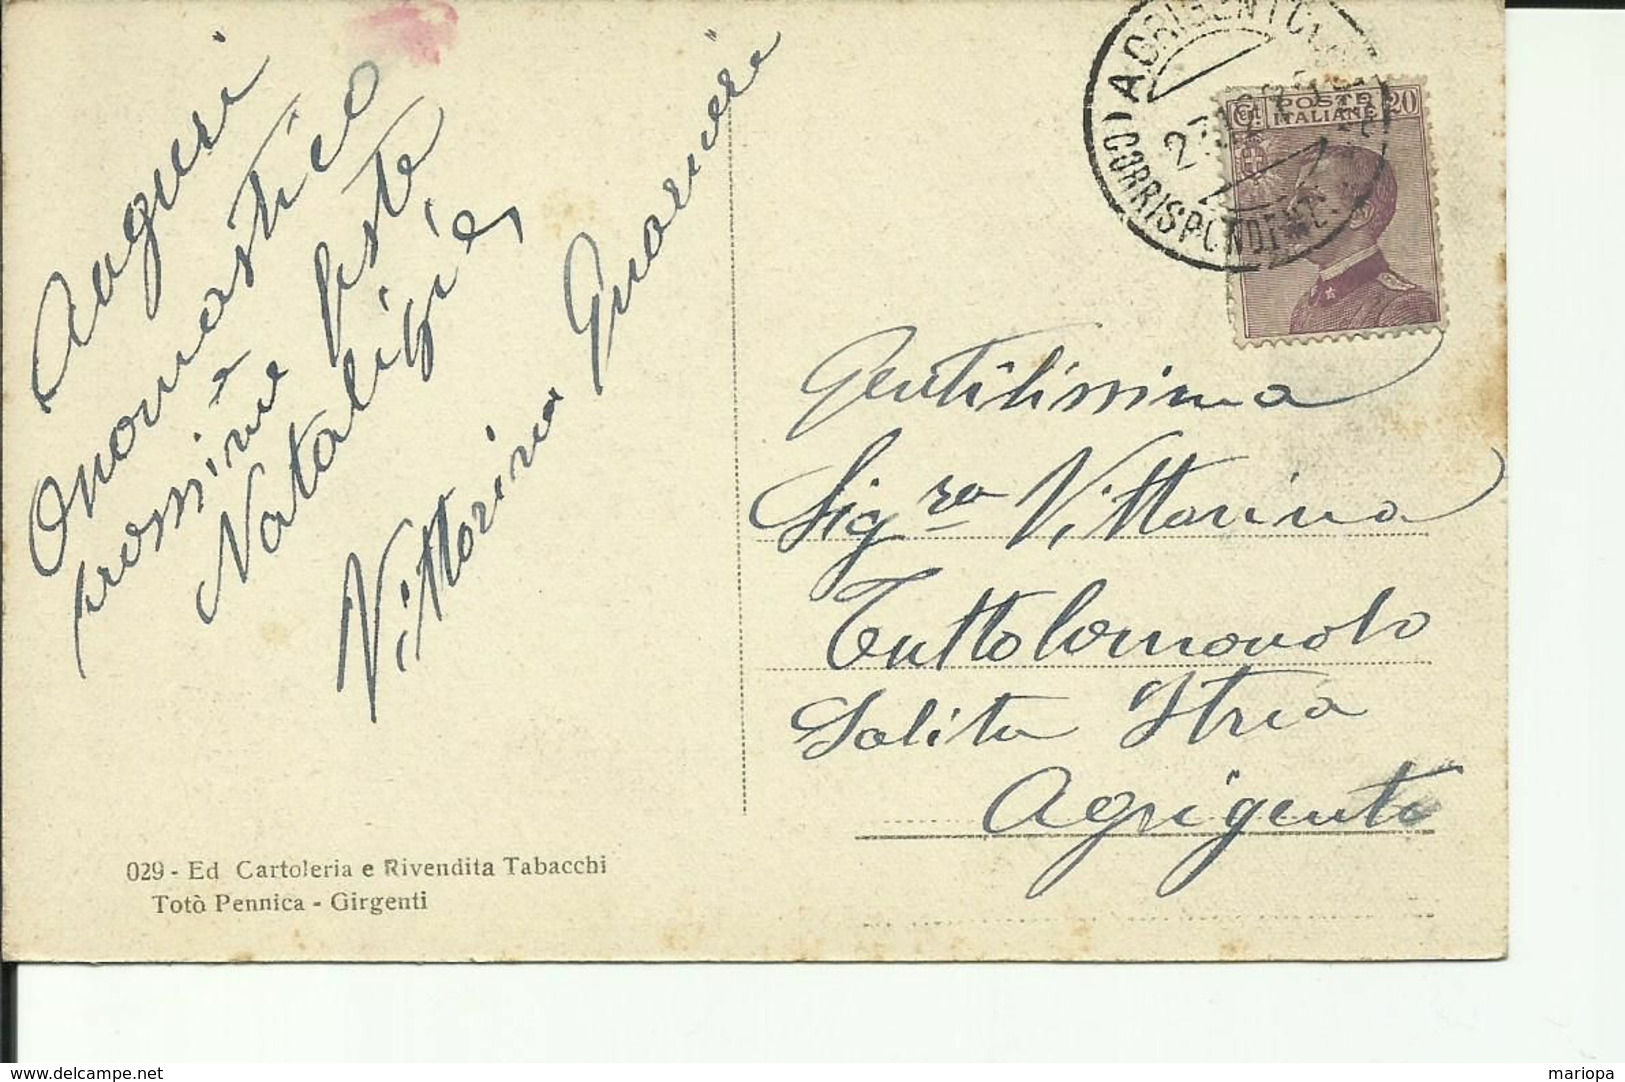 Auguri
Onomastico
e
prossime feste
Natalizie,
Vittorina Guarneri
AGRIGENTO
CORRISPONDENZE
Cent.
POSTE
ITALIANE
20
Gentilissima
Sig.ra Vittorina
Tuttolomondo
Salita Itria
Agrigento
029 - Ed Cartoleria e Rivendita Tabacchi
Totò Pennica - Girgenti
mariopa